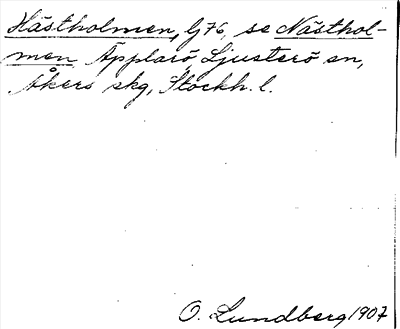 Hästholmen, lj 76, se Nästhol-
men Äpplarö, Ljusterö sn,
Åkers skg, Stockh. l.
O. Lundberg 1907